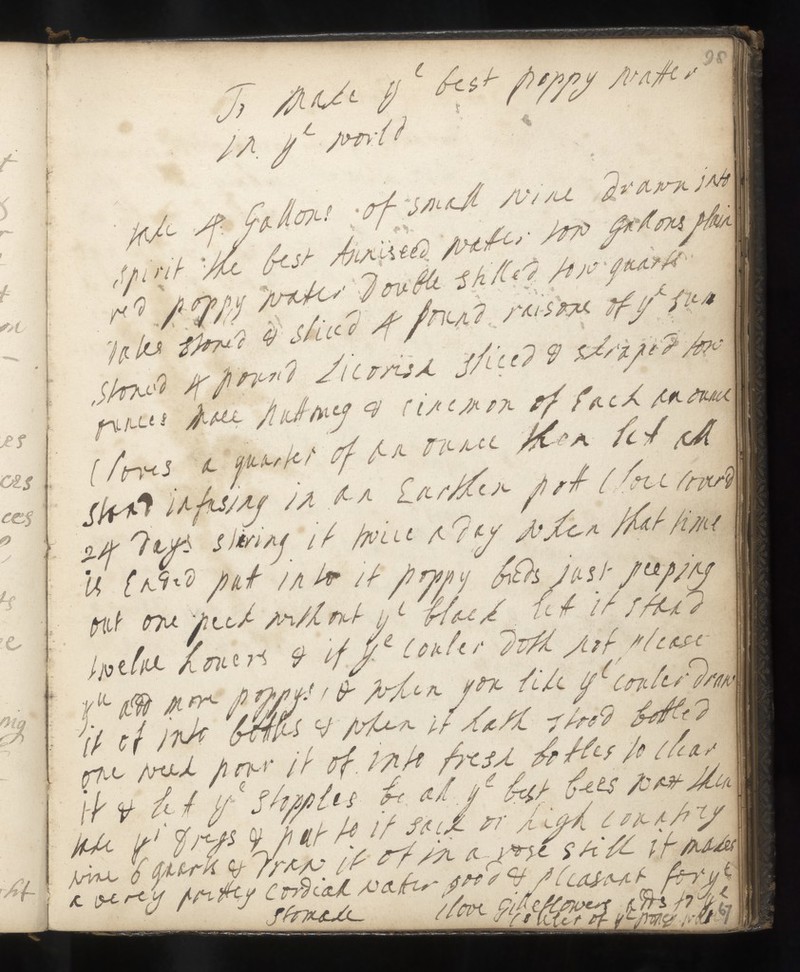 98
To make yᵉ best poppy watter
in yᵉ world
take 4 Gallons of small wine drawn into
spirit the best Anniseed watter tow Gallons plain
red poppy water Double stilled tow quarts
Dates stoned & sliced 4 pound raisons of yᵉ sun
stoned 4 pound Licorish sliced & scraped tow
ounces mace nuttmeg & cinemon of Each an ounce
Cloves a quarter of an ounce then let all
stand infusing in an Earthen pott Close coverd
24 Days stiring it twice a day when that time
is Ended putt into it poppy buds just peeping
out one peck without yᵉ black let it stand
twelve howers & if yᵉ couler doth not please
yᵘ add more poppys, & when you like yᵉ couler draw
it of into bottles & when it hath stood bottled
one week pour it of into fresh botles to clear
it & let yᵉ stopples be all yᵉ best bees wax then
take yᵉ dregs & put to it sack or high country
wine 6 quarts & Draw it of in a rose still it makes
a verey prettey cordiall watter good & pleasant for yᵉ
stomack Clove Gilleflowers adds to yᵉ
couler of yᵉ